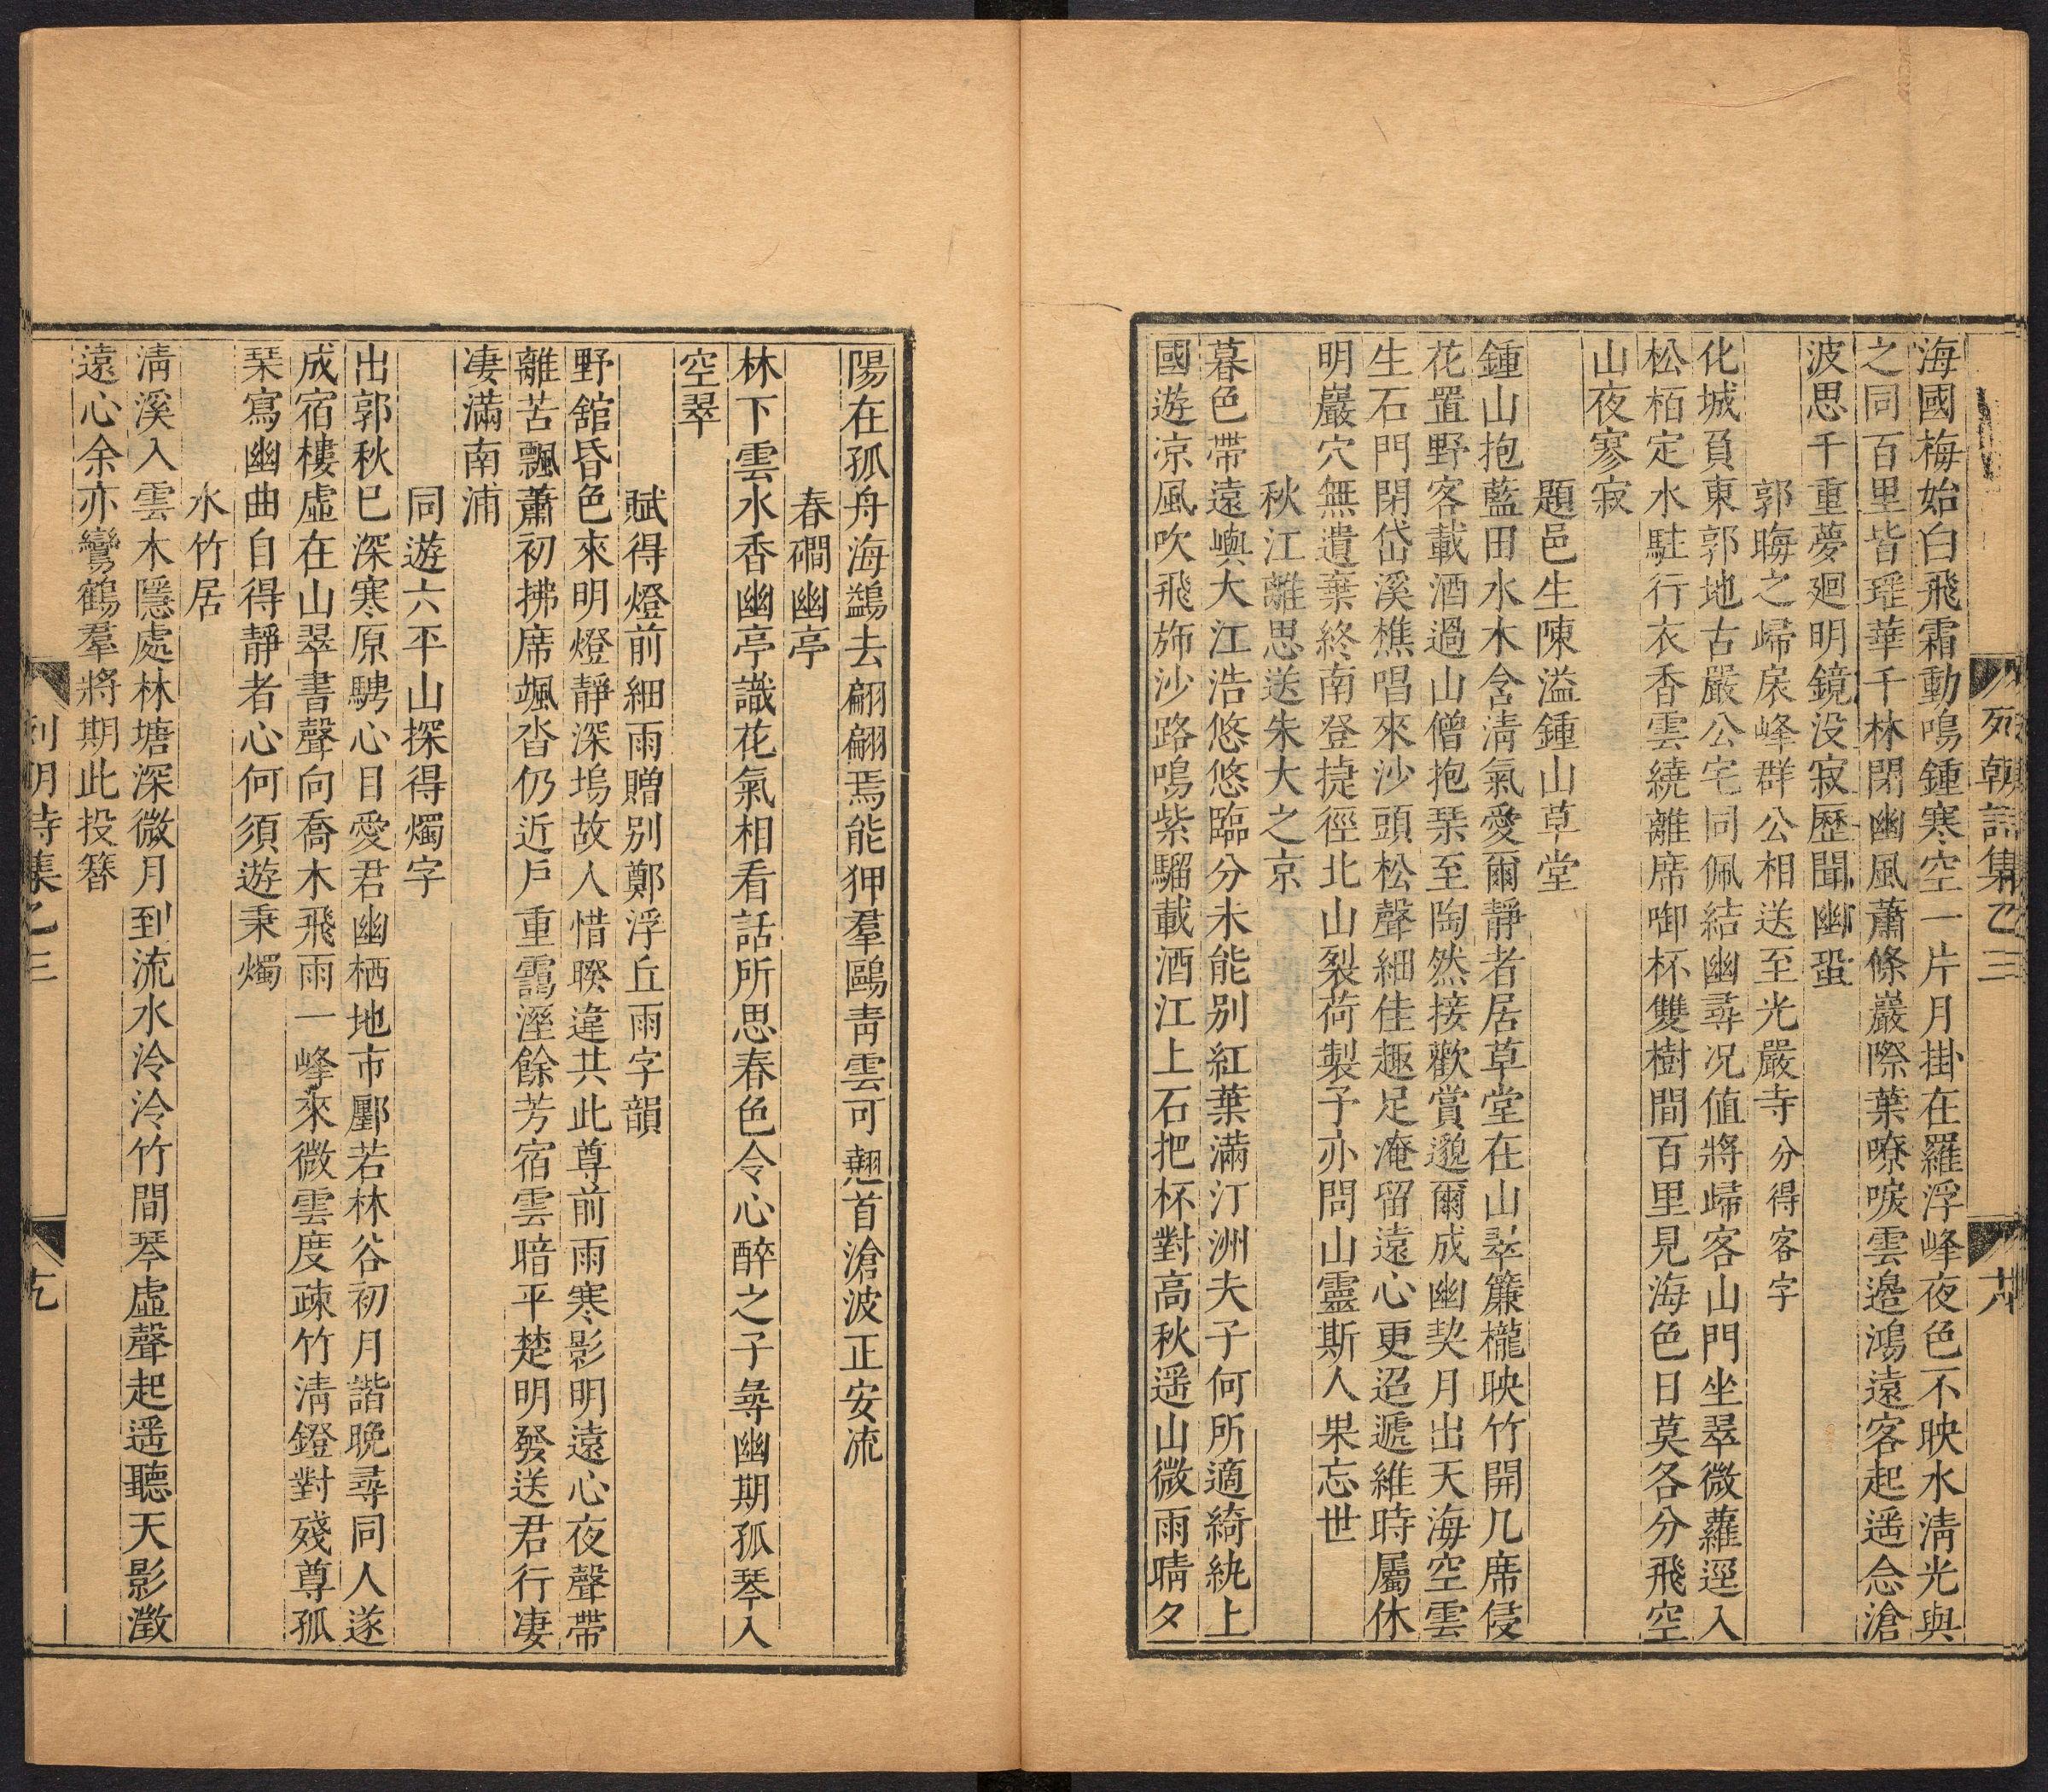 海國梅始白飛霜動鳴鍾寒空一片月掛在羅浮峰夜色不映水淸光與
之同百里皆瑤華千林閉幽風蕭條巖際葉嘹唳雲邉鴻遠客起遥念滄
波思千重夢廻明鏡没寂歷聞幽蛩
郭晦之歸㞐峰群公相送至光嚴寺分得客字
化城負東郭地古嚴公宅同佩結幽尋况值將歸客山門坐翠微蘿逕入
松栢定水駐行衣香雲繞離席啣杯雙樹間百里見海色日莫各分飛空
山夜寥寂
題邑生陳溢鍾山草堂
鍾山抱藍田水木含淸氣愛爾靜者居草堂在山翠簾櫳映竹開几席侵
花置野客載酒過山僧抱琹至陶然接歡賞邈爾成幽契月出天海空雲
生石門閉岱溪樵唱來沙頭松聲細佳趣足淹留遠心更迢遞維時屬休
明巖穴無遺棄終南登捷徑北山裂荷製子亦問山靈斯人果忘世
秋江離思送朱大之京
暮色帶遠嶼大江浩悠悠臨分未能别紅葉滿汀洲夫子何所適綺紈上
國遊凉風吹飛斾沙路鳴紫騮載酒江上石把杯對高秋遥山微雨晴夕
列朝詩集乙三
十八
陽在孤舟海鷁去翩翩焉能狎羣鷗靑雲可翹首滄波正安流
春磵幽亭
林下雲水香幽亭識花氣相看話所思春色令心醉之子尋幽期孤琴入
空翠
賦得燈前細雨贈别鄭浮丘雨字韻
野舘昏色來明燈靜深塢故人惜暌違共此尊前雨寒影明遠心夜聲帶
離苦飄蕭初拂席颯沓仍近戶重靄溼餘芳宿雲暗平楚明發送君行凄
凄滿南浦
同遊六平山探得燭字
出郭秋巳深寒原騁心目愛君幽栖地市郾若林谷初月諧晚尋同人遂
成宿樓虛在山翠書聲向喬木飛雨一峰來微雲度疎竹淸鐙對殘尊孤
琹寫幽曲自得靜者心何須遊秉燭
水竹居
淸溪入雲木隱處林塘深微月到流水泠泠竹間琴虛聲起遥聽天影澂
遠心余亦鸞鶴羣將期此投簮
列朝詩集乙三
九